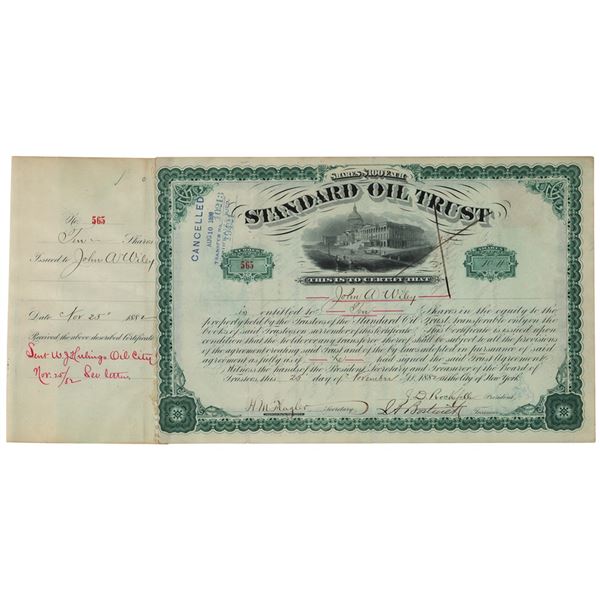 No.
565
Ten Shares
Issued to John A Wiley
Date Nov 25th 1882
Received the above described Certificate
Sent W.J. Oil City
Nov. 25/82 See letter
CANCELLED
AUG 10
TRANSFER No.
SHARES $100 EACH
STANDARD OIL TRUST
NUMBER
565
SHARES
THIS IS TO CERTIFY THAT
John A Wiley
is entitled to Ten Shares in the equity to the
property held by the Trustees of the Standard Oil Trust, transferable only on the
books of said Trustees on surrender of this Certificate. This Certificate is issued upon
condition that the holder or any transferee thereof shall be subject to all the provisions
of the agreement creating said Trust and of the by laws adopted in pursuance of said
agreement as fully as if he had signed the said Trust Agreement.
Witness the hands of the President, Secretary and Treasurer of the Board of
Trustees, this 25 day of November A.D. 1882 at the City of New York.
J.D. Rockefeller President,
H M Flagler Secretary.
J A Bostwick Treasurer.